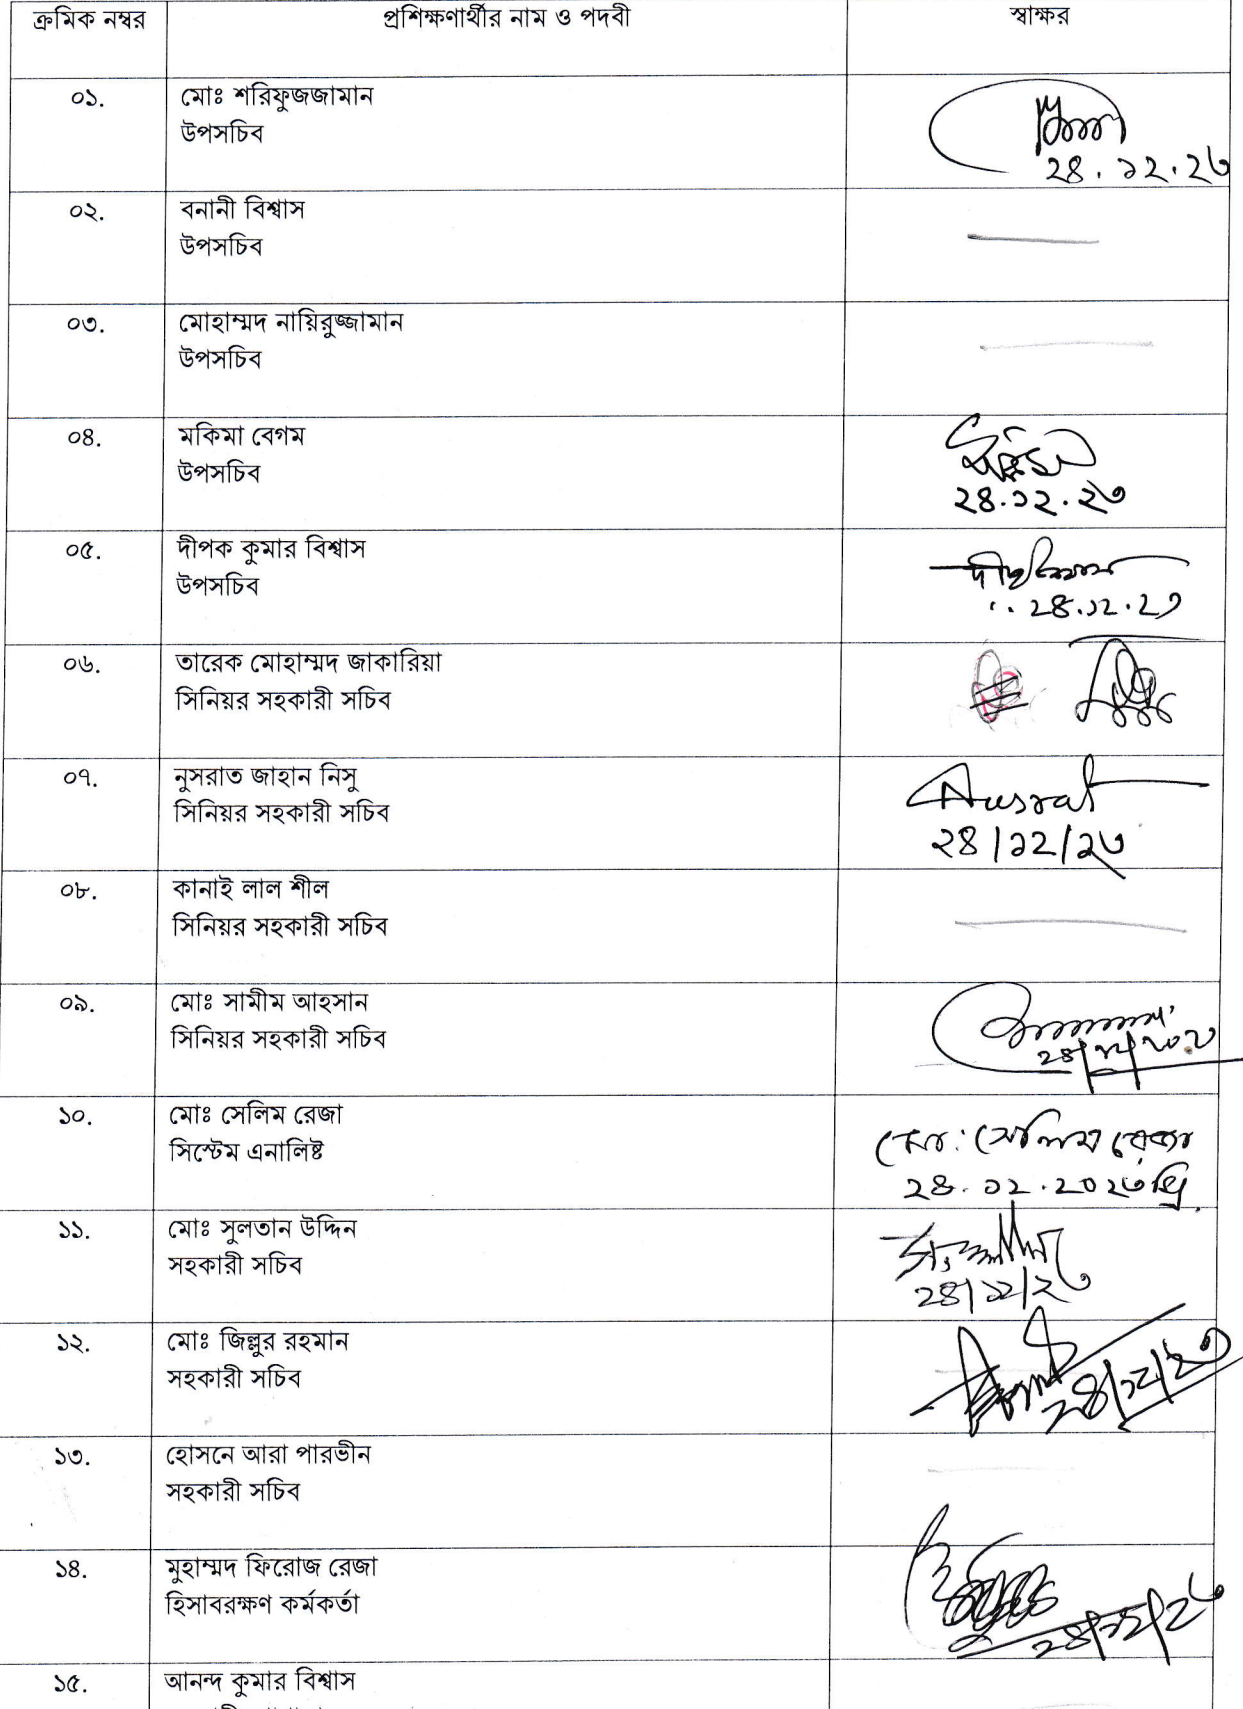 ক্রমিক নম্বর প্রশিক্ষণার্থীর নাম ও পদবী স্বাক্ষর
০১. মোঃ শরিফুজজামান
উপসচিব
২৪.১২.২৩
০২. বনানী বিশ্বাস
উপসচিব
০৩. মোহাম্মদ নায়িরুজ্জামান
উপসচিব
০৪. মকিমা বেগম
উপসচিব
২৪.১২.২৩
০৫. দীপক কুমার বিশ্বাস
উপসচিব
২৪.১২.২৩
০৬. তারেক মোহাম্মদ জাকারিয়া
সিনিয়র সহকারী সচিব
০৭. নুসরাত জাহান নিসু
সিনিয়র সহকারী সচিব Nusrat
২৪/১২/২৩
০৮. কানাই লাল শীল
সিনিয়র সহকারী সচিব
০৯. মোঃ সামীম আহসান
সিনিয়র সহকারী সচিব
১০. মোঃ সেলিম রেজা
সিস্টেম এনালিষ্ট মো: সেলিম রেজা
২৪.১২.২০২৩খ্রি.
১১. মোঃ সুলতান উদ্দিন
সহকারী সচিব
২৪/১২/২৩
১২. মোঃ জিল্লুর রহমান
সহকারী সচিব ২৪/১২/২৩
১৩. হোসনে আরা পারভীন
সহকারী সচিব
১৪. মুহাম্মদ ফিরোজ রেজা
হিসাবরক্ষণ কর্মকর্তা
২৪/১২/২৩
১৫. আনন্দ কুমার বিশ্বাস